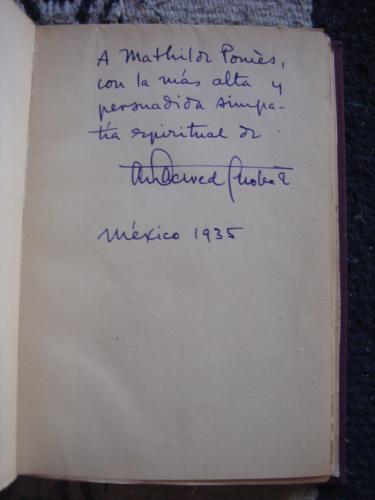 A Mathilde Pomès,
con la más alta y
persuadida simpa-
tía espiritual de
México 1935